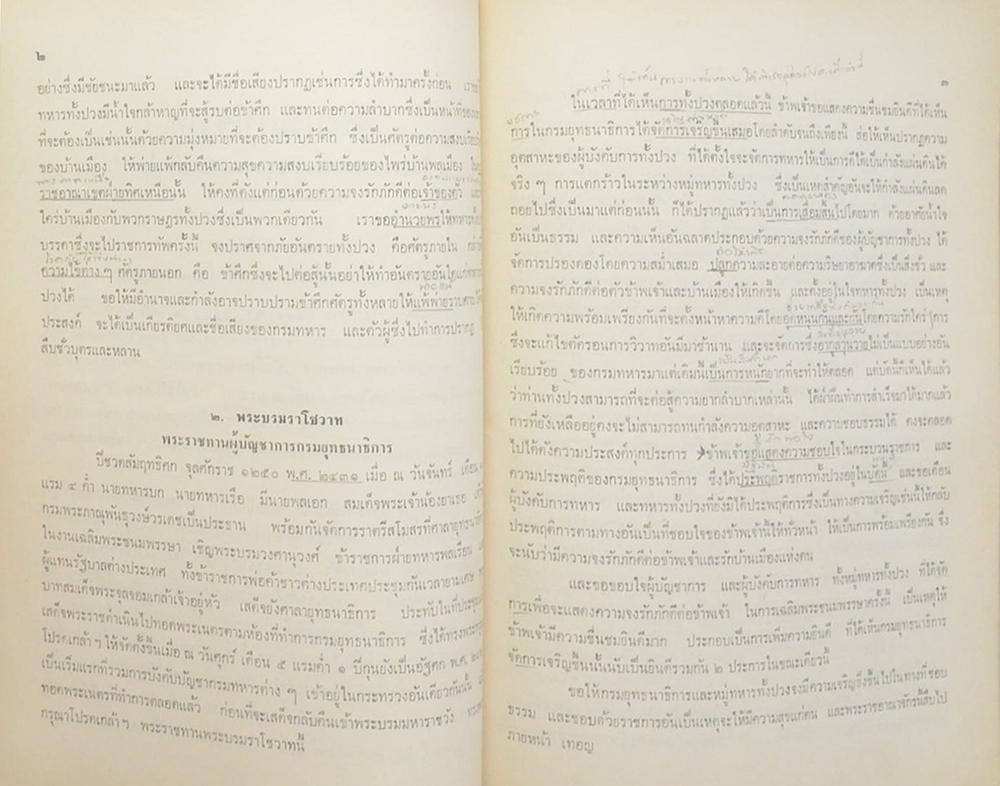 ๒
อย่างซึ่งมีชัยชนะมาแล้ว และจะได้มีชื่อเสียงปรากฏเช่นการซึ่งได้ทำมาครั้งก่อน
ทหารทั้งปวงมีน้ำใจกล้าหาญที่จะสู้รบต่อข้าศึก และทนต่อความลำบากซึ่งเป็นหน้าที่ของ
ที่จะต้องเป็นเช่นนั้นด้วยความมุ่งหมายที่จะต้องปราบข้าศึก ซึ่งเป็นศัตรูต่อความสงบเรียบร้อย
ของบ้านเมือง ให้พ่ายแพ้กลับคืนความสุขความสงบเรียบร้อยของไพร่บ้านพลเมือง
ราชอาณาเขตฝ่ายทิศเหนือนั้น ให้คงที่ดังแต่ก่อนด้วยความจงรักภักดีต่อเจ้าของตัว
ใคร่บ้านเมืองกับพวกราษฎรทั้งปวงซึ่งเป็นพวกเดียวกัน เราขออำนวยพรให้ทหาร
บรรดาซึ่งจะไปราชการทัพครั้งนี้ จงปราศจากภัยอันตรายทั้งปวง คือศัตรูภายใน
ความไข้ต่าง ๆ ศัตรูภายนอก คือ ข้าศึกซึ่งจะไปต่อสู้นั้นอย่าให้ทำอันตรายอันใดแก่
ปวงได้ ขอให้มีอำนาจและกำลังอาจปราบปรามข้าศึกศัตรูทั้งหลายให้แพ้พ่าย
ประสงค์ จะได้เป็นเกียรติยศและชื่อเสียงของกรมทหาร และตัวผู้ซึ่งไปทำการปรากฏ
สืบชั่วบุตรและหลาน
๒. พระบรมราโชวาท
พระราชทานผู้บัญชาการกรมยุทธนาธิการ
ปีชวดสัมฤทธิศก จุลศักราช ๑๒๕๐ พ.ศ. ๒๔๓๑ เมื่อ ณ วันจันทร์ เดือน
แรม ๔ ค่ำ นายทหารบก นายทหารเรือ มีนายพลเอก สมเด็จพระเจ้าน้องยาเธอ
กรมพระภาณุพันธุวงษ์วรเดชเป็นประธาน พร้อมกันจัดการราตรีสโมสรที่ศาลายุทธนาธิการ
ในงานเฉลิมพระชนมพรรษา เชิญพระบรมวงศานุวงศ์ ข้าราชการฝ่ายทหารพลเรือน
ผู้แทนรัฐบาลต่างประเทศ ทั้งข้าราชการพ่อค้าชาวต่างประเทศประชุมกันเวลายามเศษ
บาทสมเด็จพระจุลจอมเกล้าเจ้าอยู่หัว เสด็จยังศาลายุทธนาธิการ ประทับในที่ประชุม
เสด็จพระราชดำเนินไปทอดพระเนตรตามห้องที่ทำการกรมยุทธนาธิการ ซึ่งได้ทรงพระกรุณา
โปรดเกล้าฯ ให้จัดตั้งขึ้นเมื่อ ณ วันศุกร์ เดือน ๕ แรมค่ำ ๑ ปีกุนยังเป็นอัฐศก พ.ศ.
เป็นเริ่มแรกที่รวมการบังคับบัญชากรมทหารต่าง ๆ เข้าอยู่ในกระทรวงอันเดียวกันนั้น
ทอดพระเนตรที่ทำการตลอดแล้ว ก่อนที่จะเสด็จกลับคืนเข้าพระบรมมหาราชวัง
กรุณาโปรดเกล้าฯ พระราชทานพระบรมราโชวาทนี้
๓
ในเวลาที่ได้เห็นการทั้งปวงตลอดแล้วนี้ ข้าพเจ้าขอแสดงความชื่นชมยินดีที่ได้เห็น
การในกรมยุทธนาธิการได้จัดการเจริญขึ้นเสมอโดยลำดับจนถึงเพียงนี้ ส่อให้เห็นปรากฏความ
อุตสาหะของผู้บังคับการทั้งปวง ที่ได้ตั้งใจจะจัดการทหารให้เป็นการดีได้เป็นกำลังแผ่นดินได้
จริง ๆ การแตกร้าวในระหว่างหมู่ทหารทั้งปวง ซึ่งเป็นเหตุสำคัญอันจะให้กำลังแผ่นดินลด
ถอยไปซึ่งเป็นมาแต่ก่อนนั้น ก็ได้ปรากฏแล้วว่าเป็นการเสื่อมสิ้นไปโดยมาก ด้วยอาศัยน้ำใจ
อันเป็นธรรม และความเห็นอันฉลาดประกอบด้วยความจงรักภักดีของผู้บัญชาการทั้งปวง ได้
จัดการปรองดองโดยความสม่ำเสมอ ปลูกความละอายต่อความริษยาอาฆาตซึ่งเป็นสิ่งชั่ว และ
ความจงรักภักดีต่อตัวข้าพเจ้าและบ้านเมืองให้เกิดขึ้น และตั้งอยู่ในใจทหารทั้งปวง เป็นเหตุ
ให้เกิดความพร้อมเพรียงกันที่จะตั้งหน้าหาความดีโดยอุดหนุนกันและกันโดยความรักใคร่ การ
ซึ่งจะแก้ไขตัดรอนการวิวาทอันมีมาช้านาน และจะจัดการซึ่งอากูลวุ่นวายไม่เป็นแบบอย่างอัน
เรียบร้อย ของกรมทหารมาแต่เดิมนี้เป็นการหนักยากที่จะทำให้ตลอด แต่บัดนี้ก็เห็นได้แล้ว
ว่าท่านทั้งปวงสามารถที่จะต่อสู้ความยากลำบากเหล่านั้น ได้ฝ่าฝืนทำการสำเร็จมาได้มากแล้ว
การที่ยังเหลืออยู่คงจะไม่สามารถทนกำลังความอุตสาหะ และความชอบธรรมได้ คงจะตลอด
ไปได้ดังความประสงค์ทุกประการ ข้าพเจ้าขอแสดงความชอบใจในกระบวนราชการ และ
ความประพฤติของกรมยุทธนาธิการ ซึ่งได้ประพฤติราชการทั้งปวงอยู่ในบัดนี้ และขอเตือน
ผู้บังคับการทหาร และทหารทั้งปวงที่ยังมิได้ประพฤติการซึ่งเป็นทางความเจริญเช่นนี้ให้กลับ
ประพฤติการตามทางอันเป็นที่ชอบใจของข้าพเจ้านี้ให้ทั่วหน้า ให้เป็นการพร้อมเพรียงกัน จึง
จะนับว่ามีความจงรักภักดีต่อข้าพเจ้าและรักบ้านเมืองแห่งตน
และขอขอบใจผู้บัญชาการ และผู้บังคับการทหาร ทั้งหมู่ทหารทั้งปวง ที่ได้จัด
การเพื่อจะแสดงความจงรักภักดีต่อข้าพเจ้า ในการเฉลิมพระชนมพรรษาครั้งนี้ เป็นเหตุให้
ข้าพเจ้ามีความชื่นชมยินดีมาก ประกอบเป็นการเพิ่มความยินดี ที่ได้เห็นกรมยุทธนาธิการ
จัดการเจริญขึ้นนั้นนับเป็นยินดีรวมกัน ๒ ประการในขณะเดียวนี้
ขอให้กรมยุทธนาธิการและหมู่ทหารทั้งปวงจงมีความเจริญยิ่งขึ้นไปในทางที่ชอบ
ธรรม และชอบด้วยราชการอันเป็นเหตุจะให้มีความสุขแก่ตน และพระราชอาณาจักรนี้สืบไป
ภายหน้า เทอญ